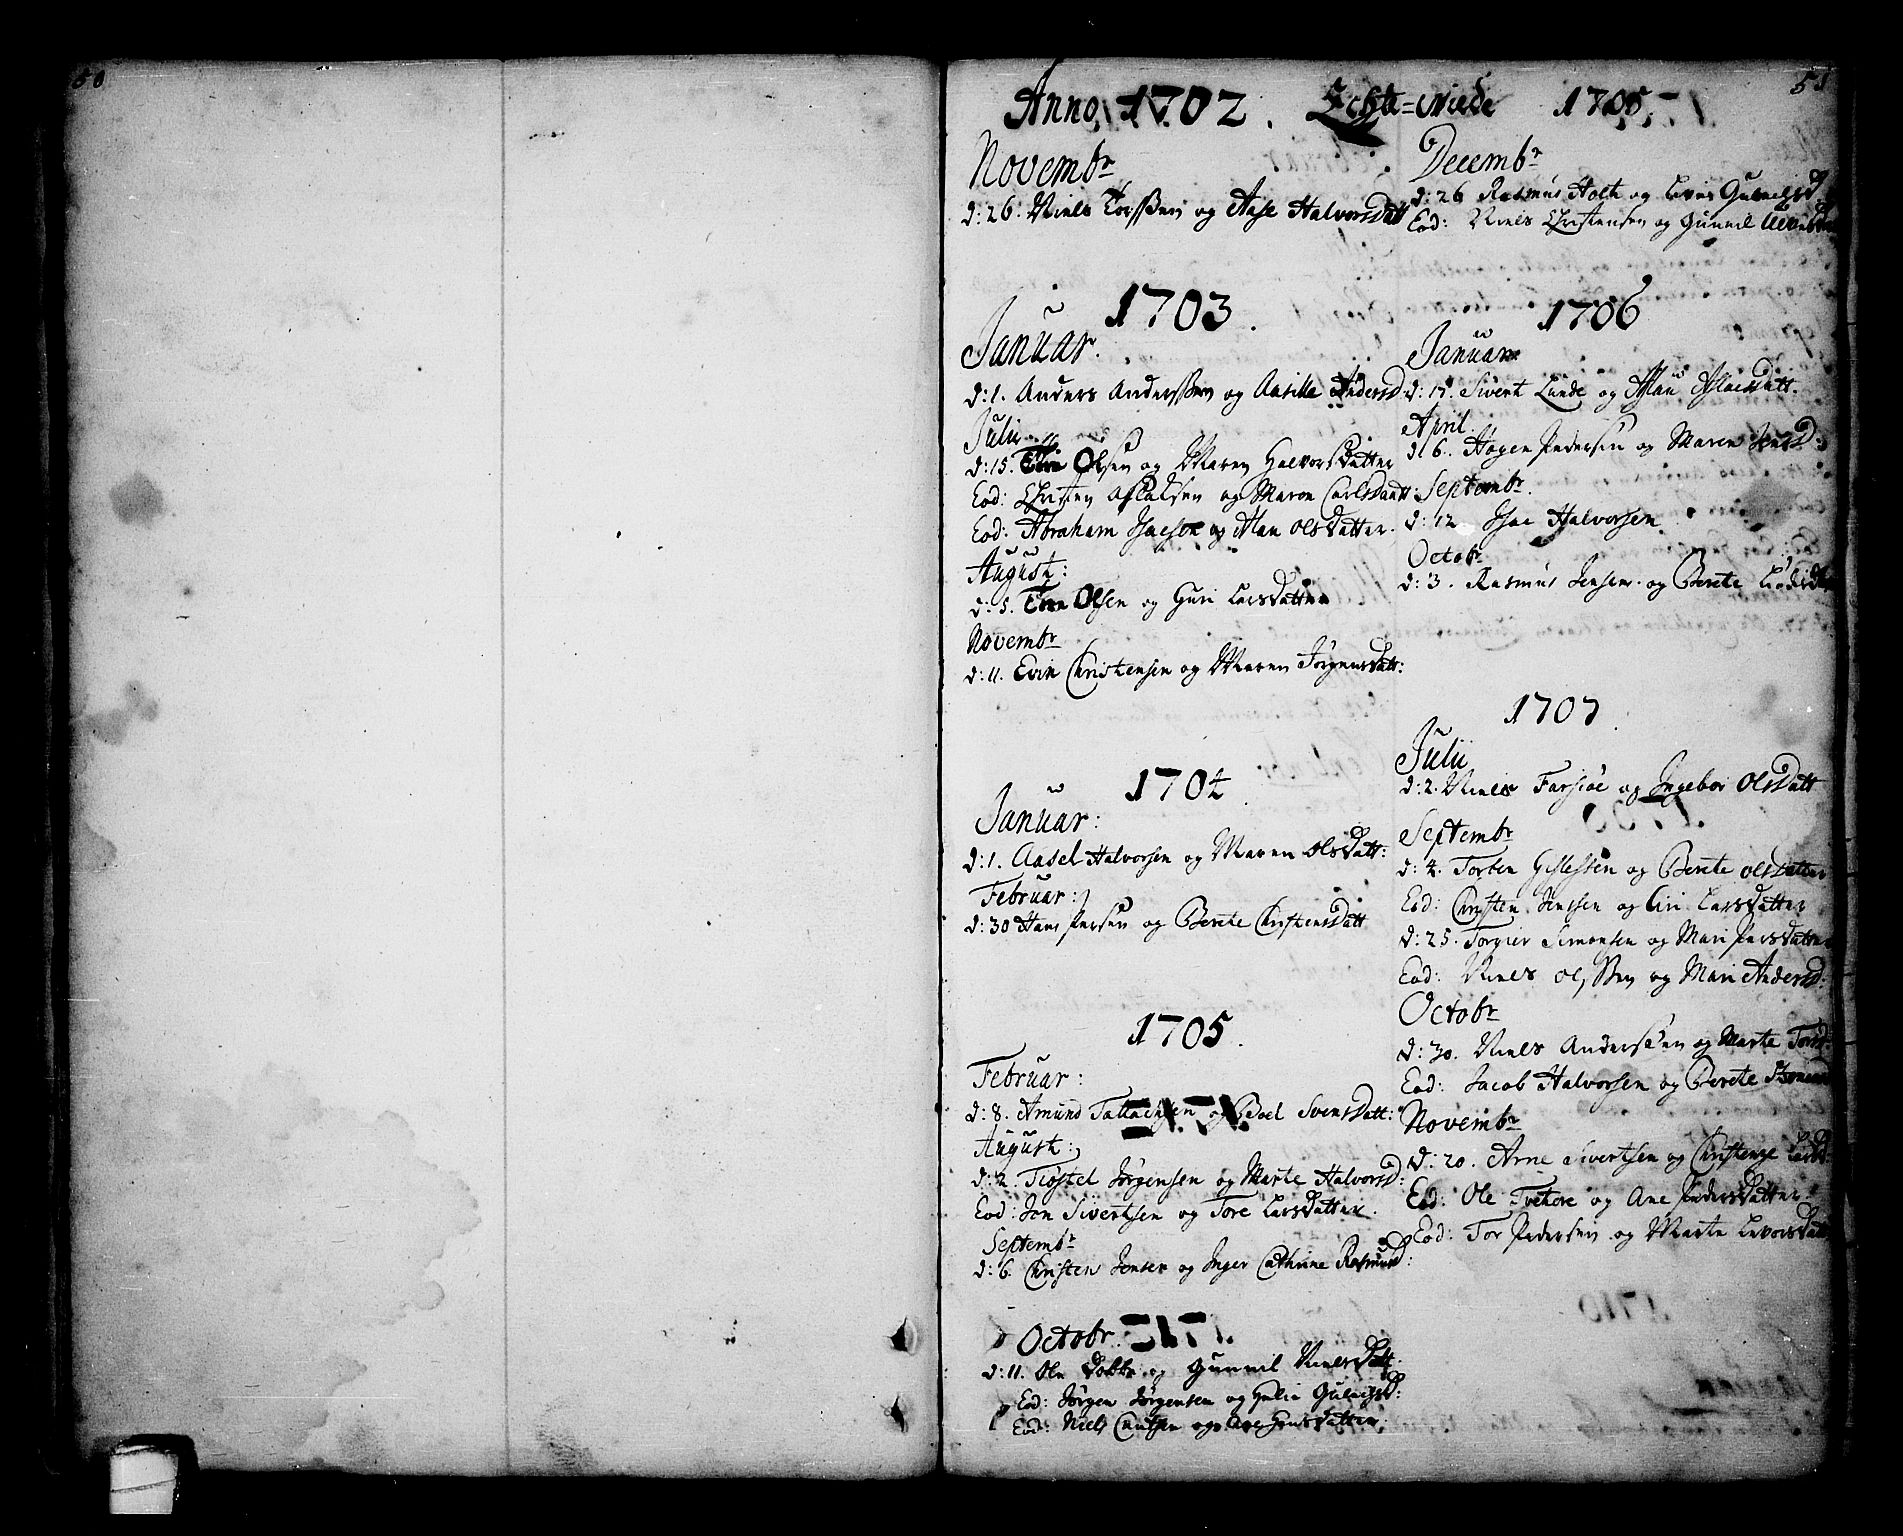 50
51
Anno 1702. Echte=Viede 1705
Novembr
d: 26. Niels og Aase Halvorsdatt
1703.
Januar.
d: 1. Anders Anderssen og Aasille Andersd:
Julii
d: 15. Even Olsen og Maren Halvorsdatter
Eod: Christen Aslaksen og Maren Carlsdaatt:
Eod: Abraham Isacsen og Alau Olsdatter.
August:
d: 5. Even Olsen og Guri Larsdatter
Novembr
d: 11. Evin Christensen og Maren Jørgensdatt:
1704.
Januar:
d: 1. Aasel Halvorsen og Maren Olsdatt:
Februar:
d: 30 Hans Persen og Berete Christensdatt
1705.
Februar:
d: 8. Amund Tallachsen og Boel Svensdatt:
August:
d: 2. Tiøstel Jørgensen og Marte Halvorsd:
Eod: Jon Sivertsen og Tore Larsdatter.
Septembr
d: 6. Christen Jensen og Inger Cathrine Rasmusd:
Octobr.
d: 11. Ole Dobbe og Gunnil Nielsdatt.
Eod: Jørgen Jørgensen og Gulichsd:
Eod: Niels Cnutsen og
Decembr
d: 26 Rasmus Holte og Gulichsd
Eod: Niels Christensen og Gunnil
1706
Januar
d: 17. Sivert Lunde og Aslau Aslacsdatt.
April.
d: 6. Hagen Pedersen og Maren Jensd:
Septembr.
d: 12 Isac Halvorsen
Octobr
d: 3. Rasmus Jensen og Berete
1707.
Julii
d: 2. Niels Farsiøe og Ingebor Olsdatt
Septembr
d: 4. Torben Gislessen og Berete Olsdatter
Eod: Christen Jenssen og Siri Larsdatter
d: 25. Torgier Simonsen og Mari Persdatter
Eod: Niels Olssen og Mari Andersd:
Octobr
d: 30. Niels Andersen og Marte
Eod: Jacob Halvorsen og Berete
Novembr
d: 20. Arne Sivertsen og Christenze Larsd:
Eod: Ole Tvetore og Ane Pedersdatter.
Eod: Tor Pedersen og Marte Levorsdatt